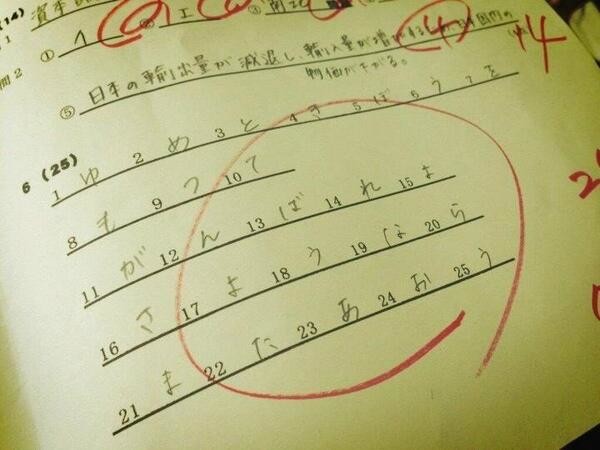 (14) 資本
① イ ② エ ③ 南北 ④
問2
⑤ 日本の輸出量が減退し、輸入量が増加する 国内の
物価が下がる。
14
6 (25)
1 ゆ 2 め 3 と 4 き 5 ぼ 6 う 7 を
8 も 9 つ 10 て
11 が 12 ん 13 ば 14 れ 15 よ
16 さ 17 よ 18 う 19 な 20 ら
21 ま 22 た 23 あ 24 お 25 う